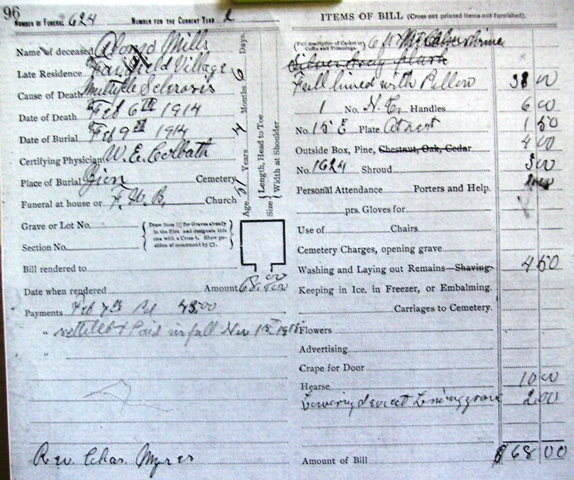 96
NUMBER OF FUNERAL 624 NUMBER FOR THE CURRENT YEAR 2
Name of deceased Alonzo Mills
Late Residence Fairfield Village
Cause of Death Multiple Sclerosis
Date of Death Feb 6th 1914
Date of Burial Feb 9th 1914
Certifying Physician W. E. Colbath
Place of Burial Zion Cemetery
Funeral at house or F. W. B. Church
Grave or Lot No.
Section No.
Draw lines for Graves already in the Plot and designate this one with a Cross †. Show position of monument by
Bill rendered to
Date when rendered Amount 68.00
Payments Feb 7th By 48.00
" settled & Paid in full Nov 1st 1915
"
Rev. Chas. Myres
Age Years 4 Months 6 Days.
Size Length, Head to Toe
Width at Shoulder
ITEMS OF BILL (Cross out printed items not furnished).
(Full description of Casket or Coffin and Trimmings) 6ft
Silver Gray plush
Full lined with Pillow 38 00
1 No. Handles 6 00
No. 15 E Plate At rest 1 50
Outside Box, Pine, Chestnut, Oak, Cedar 4 00
No. 1624 Shroud 3 00
Personal Attendance Porters and Help.
prs. Gloves for
Use of Chairs
Cemetery Charges, opening grave
Washing and Laying out Remains Shaving 4 50
Keeping in Ice, in Freezer, or Embalming.
Carriages to Cemetery.
Flowers
Advertising
Crape for Door
Hearse 10 00
Lowering device & Lining grave 2 00
Amount of Bill $68 00